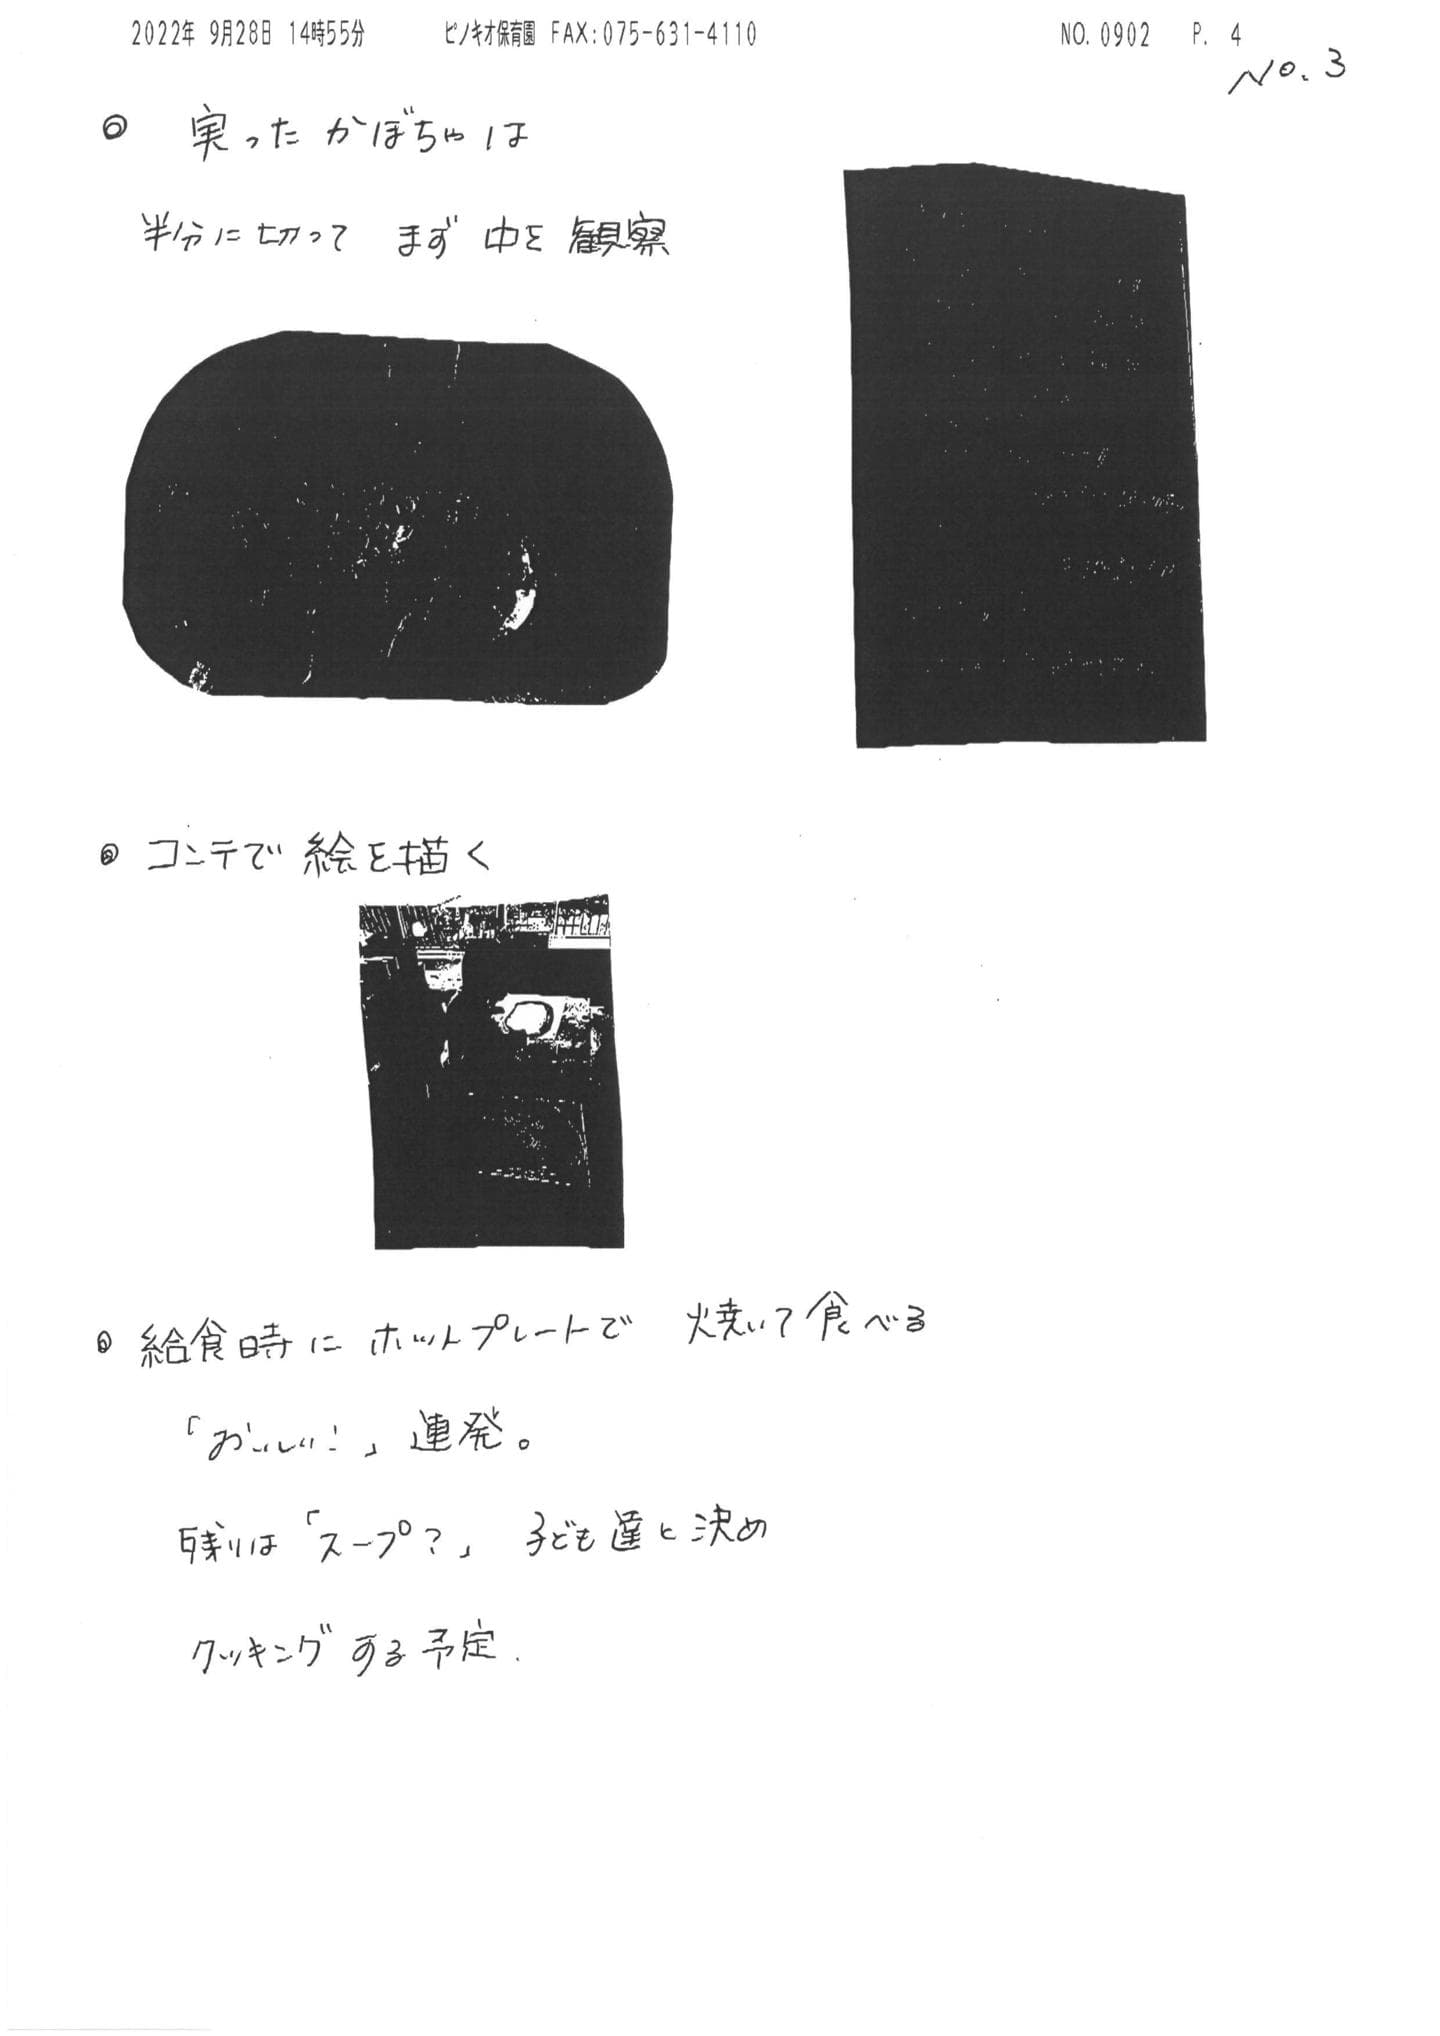 2022年 9月28日 14時55分 ピノキオ保育園 FAX:075-631-4110 NO.0902 P. 4
No.3
◎ 実ったかぼちゃは
半分に切って まず 中を 観察
◎ コンテで 絵を描く
◎ 給食時に ホットプレートで 焼いて食べる
「おいしい!」連発。
残りは「スープ?」 子ども達と決め
クッキングする予定.